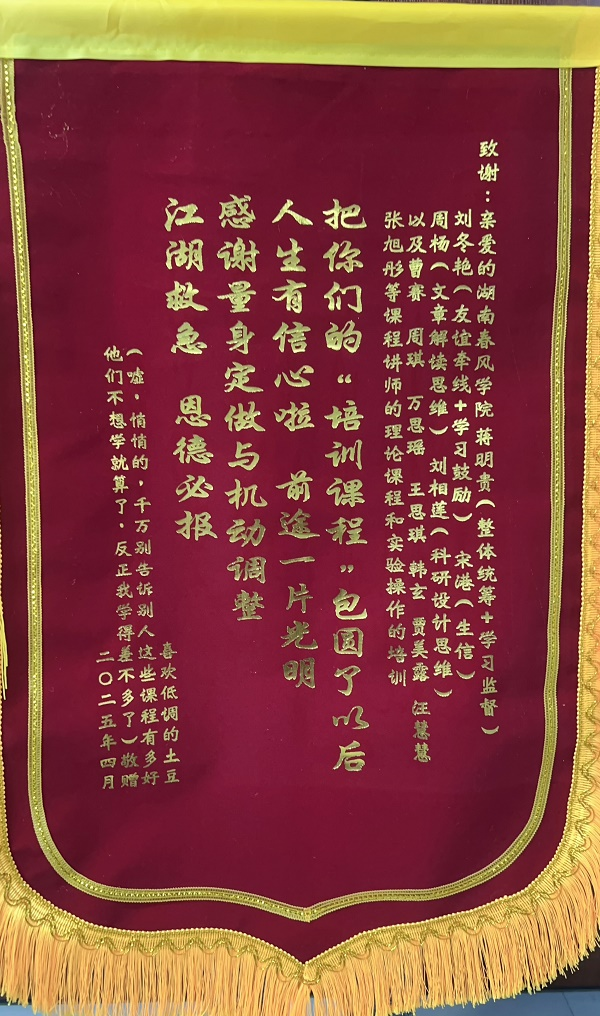 致谢：亲爱的湖南春风学院蒋明贵（整体统筹+学习监督）
刘冬艳（友谊牵线+学习鼓励） 宋港（生信）
周杨（文章解读思维） 刘相莲（科研设计思维）
以及曹赛 周琪 万思瑶 王思琪 韩玄 贾美露 汪慧慧
张旭彤等课程讲师的理论课程和实验操作的培训
把你们的“培训课程”包圆了以后
人生有信心啦 前途一片光明
感谢量身定做与机动调整
江湖救急 恩德必报
喜欢低调的土豆
（嘘，悄悄的，千万别告诉别人这些课程有多好
他们不想学就算了，反正我学得差不多了）敬赠
二〇二五年四月